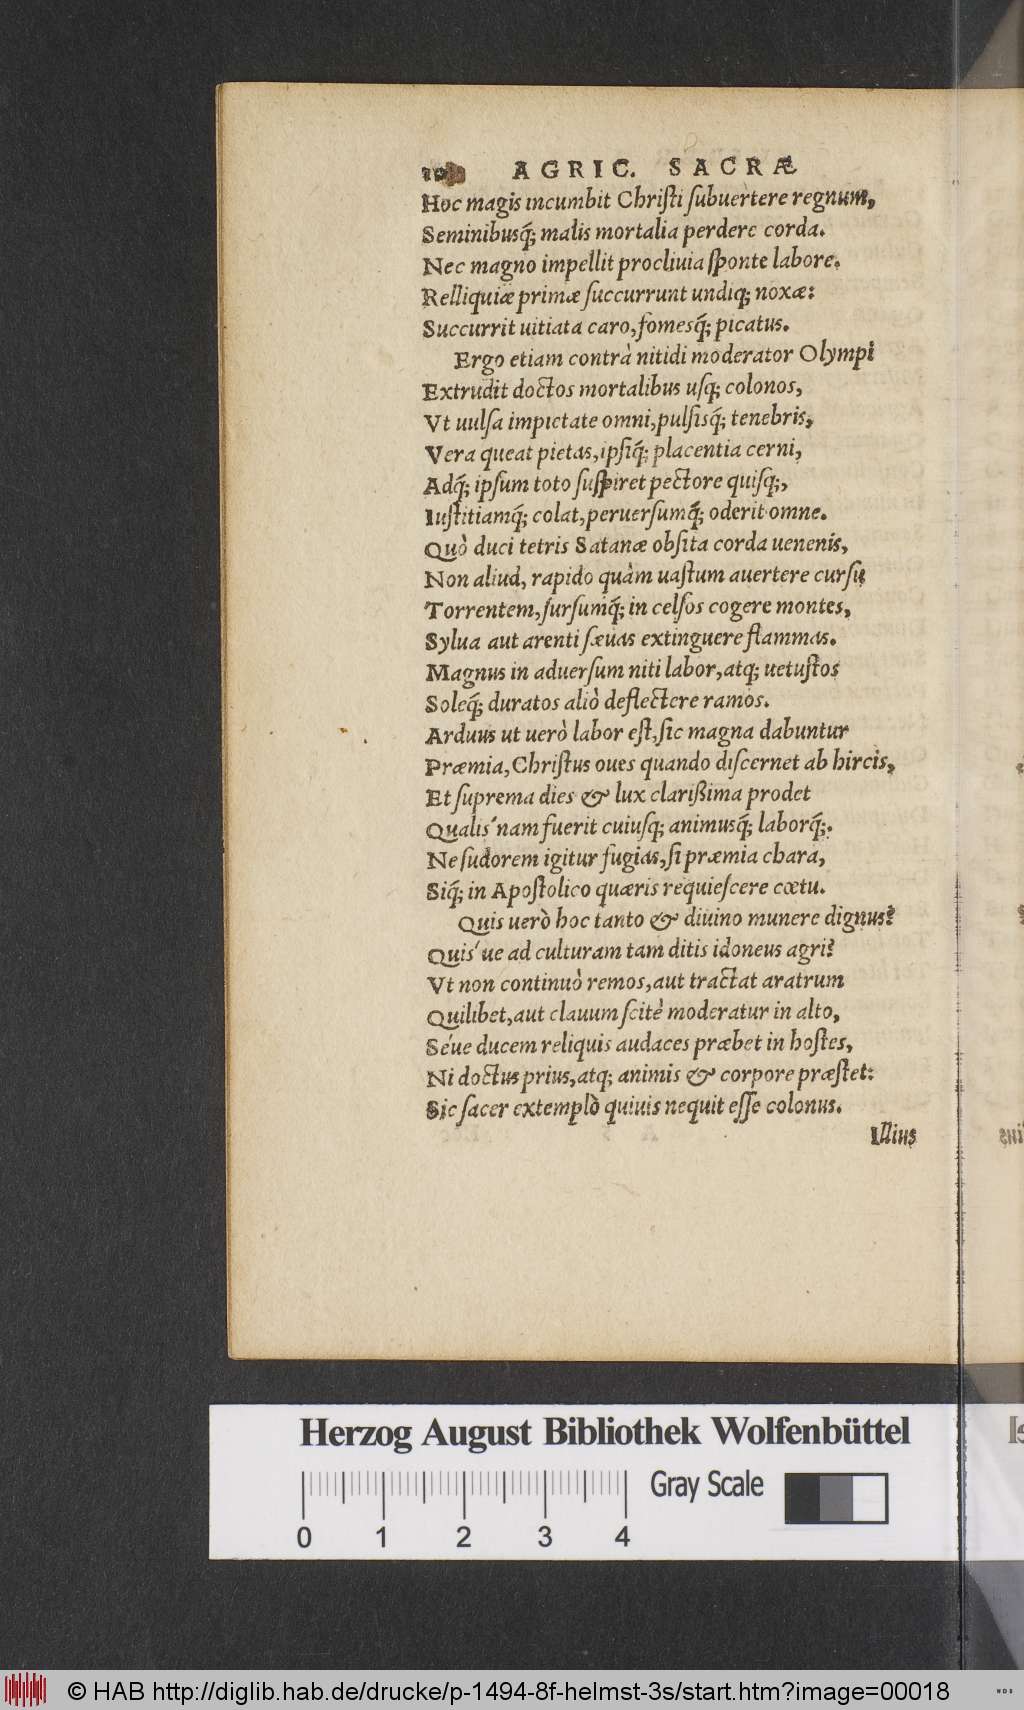 10 AGRIC. SACRÆ
Hoc magis incumbit Chriſti ſubuertere regnum,
Seminibusq́; malis mortalia perdere corda.
Nec magno impellit procliuia ſponte labore.
Relliquiæ primæ ſuccurrunt undiq; noxæ:
Succurrit uitiata caro, fomesq́; picatus.
Ergo etiam contrà nitidi moderator Olympi
Extrudit doctos mortalibus uſq; colonos,
Vt uulſa impietate omni, pulſisq́; tenebris,
Vera queat pietas, ipſiq́; placentia cerni,
Adq́; ipſum toto ſuſpiret pectore quiſq;,
Iuſtitiamq́; colat, peruerſumq́; oderit omne.
Quò duci tetris Satanæ obſita corda uenenis,
Non aliud, rapido quàm uaſtum auertere curſu
Torrentem, ſurſumq́; in celſos cogere montes,
Sylua aut arenti ſæuas extinguere flammas.
Magnus in aduerſum niti labor, atq; uetuſtos
Soleq́; duratos aliò deflectere ramos.
Arduus ut uerò labor eſt, ſic magna dabuntur
Præmia, Chriſtus oues quando diſcernet ab hircis,
Et ſuprema dies & lux clarißima prodet
Qualis'nam fuerit cuiuſq; animusq́; laborq́;.
Ne ſudorem igitur fugias, ſi præmia chara,
Siq́; in Apoſtolico quæris requieſcere cœtu.
Quis uerò hoc tanto & diuino munere dignus?
Quis'ue ad culturam tam ditis idoneus agri?
Vt non continuò remos, aut tractat aratrum
Quilibet, aut clauum ſcitè moderatur in alto,
Séue ducem reliquis audaces præbet in hoſtes,
Ni doctus prius, atq; animis & corpore præſtet:
Sic ſacer extemplò quiuis nequit eſſe colonus.
Illius
Herzog August Bibliothek Wolfenbüttel
Gray Scale
0 1 2 3 4
© HAB http://diglib.hab.de/drucke/p-1494-8f-helmst-3s/start.htm?image=00018